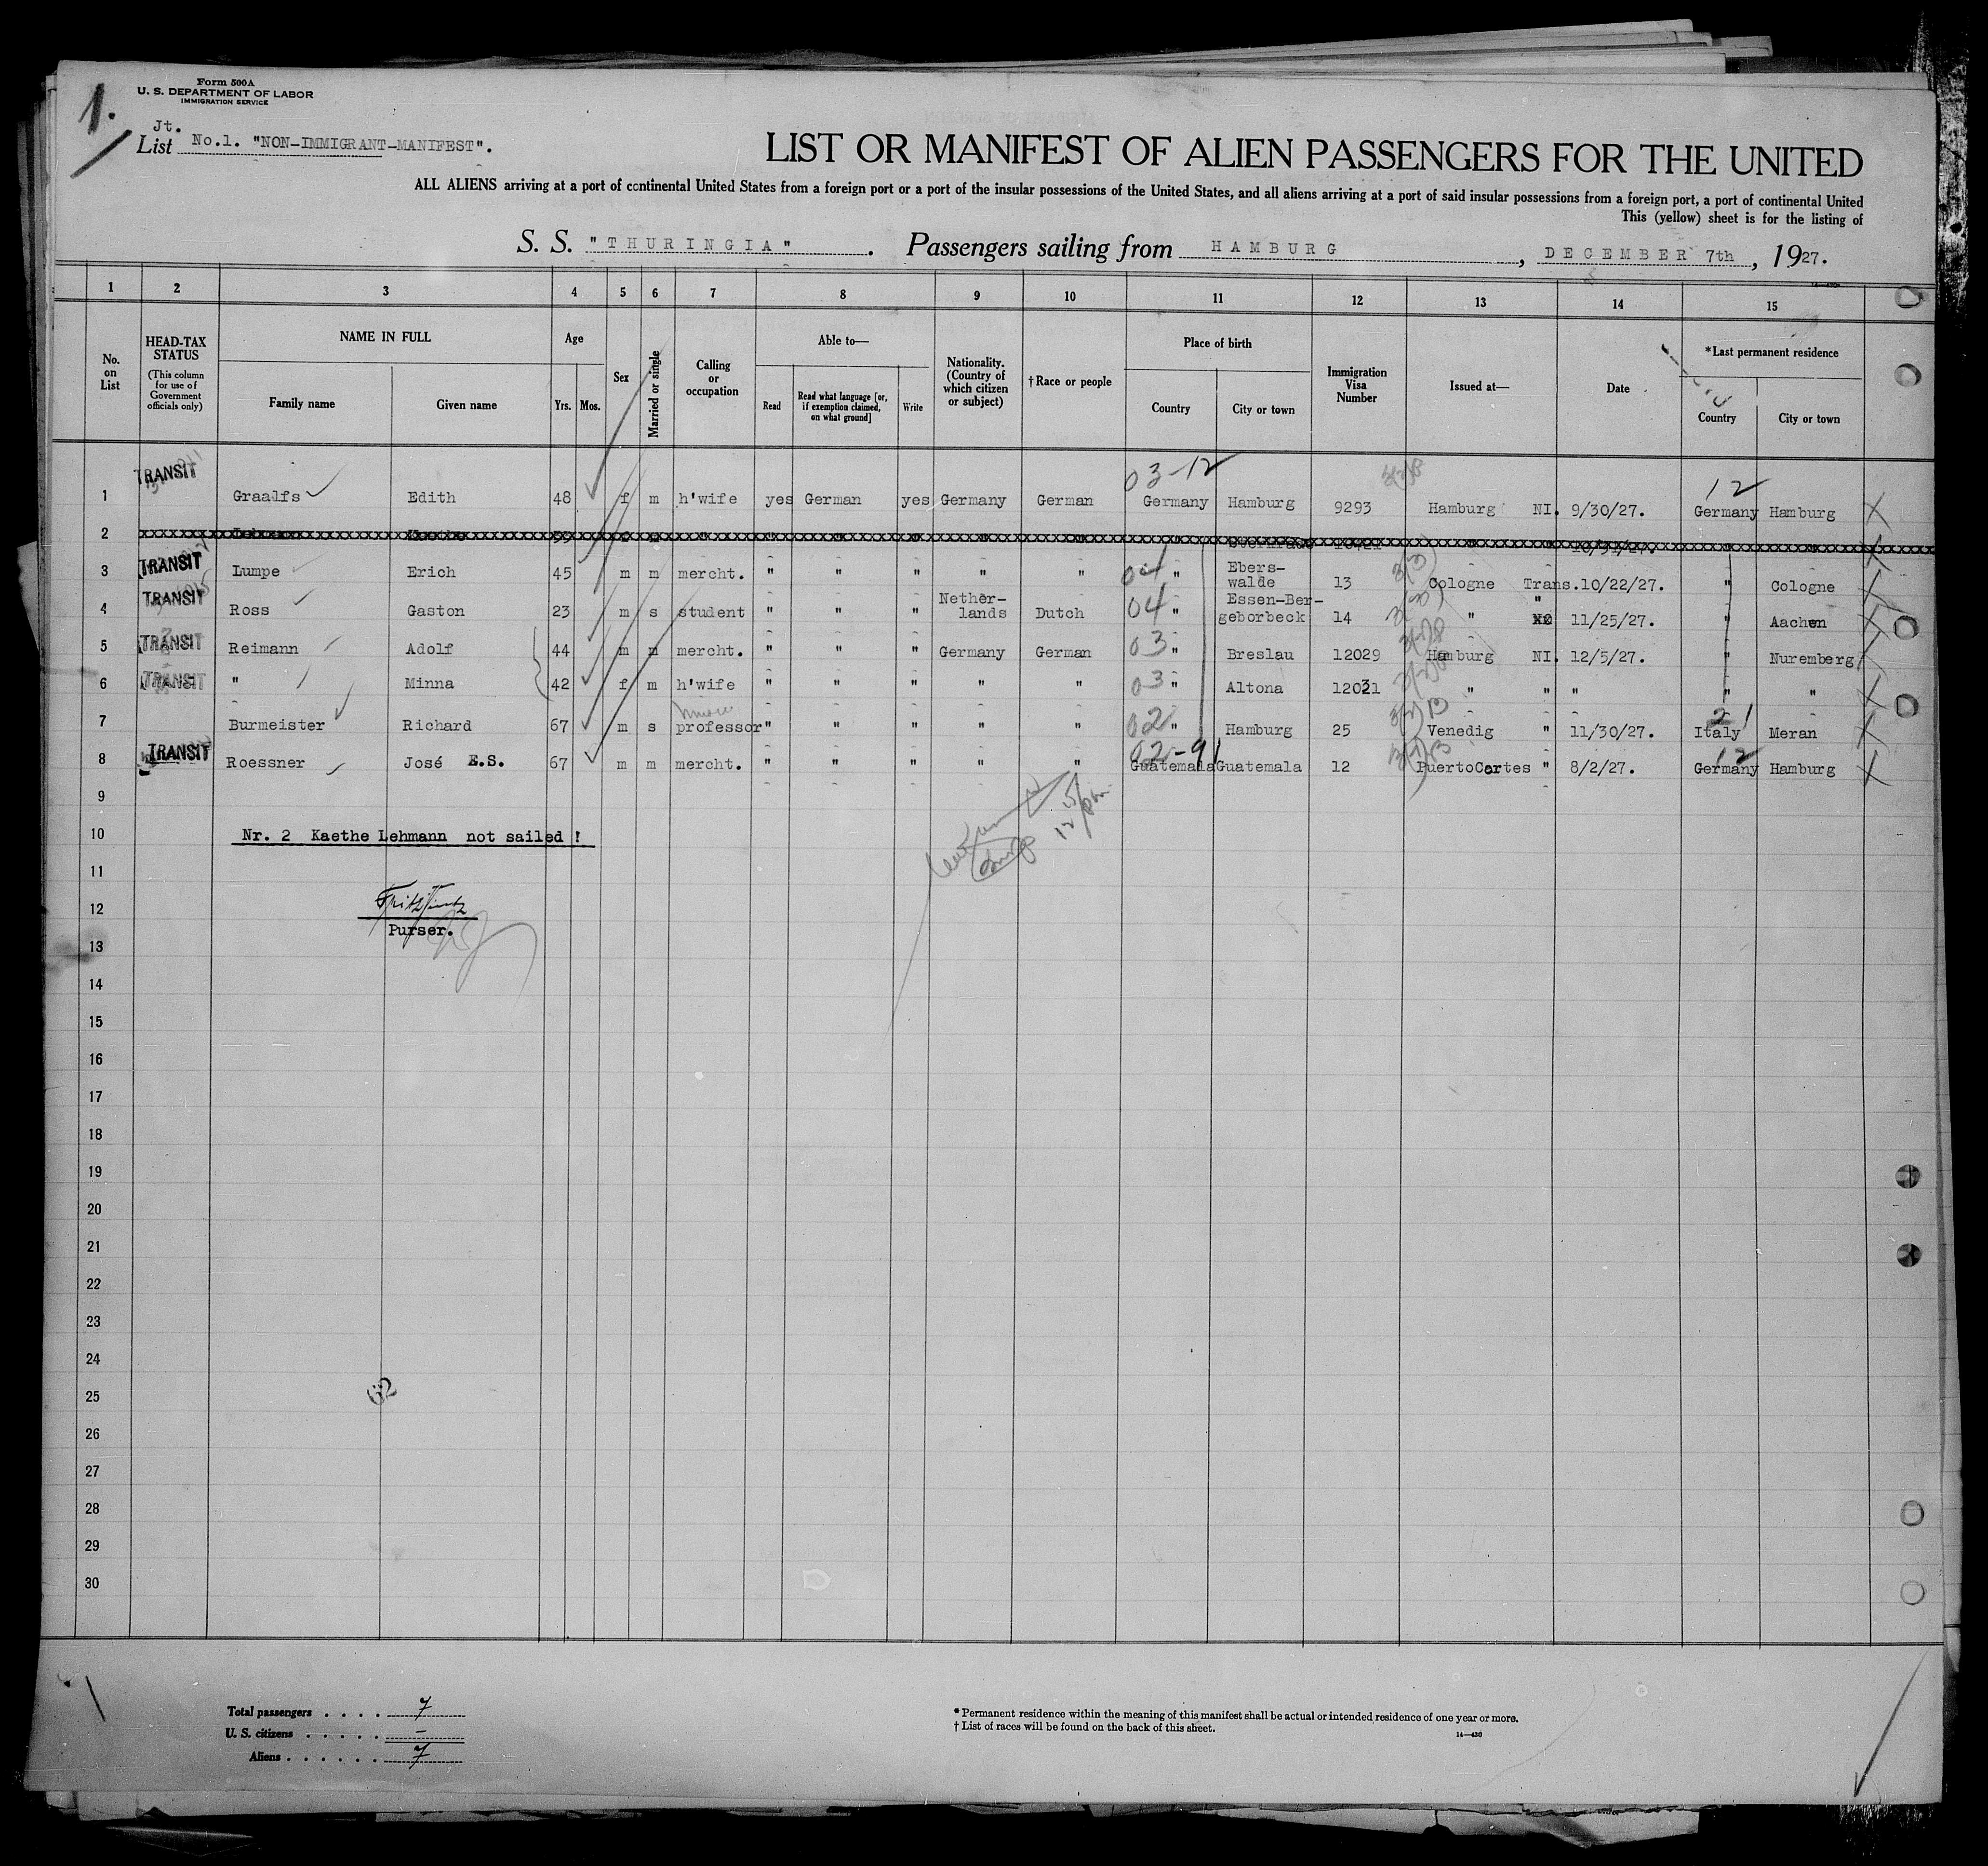 1.
Form 500A
U. S. DEPARTMENT OF LABOR
IMMIGRATION SERVICE
Jt.
List No.1. "NON-IMMIGRANT-MANIFEST".
LIST OR MANIFEST OF ALIEN PASSENGERS FOR THE UNITED
ALL ALIENS arriving at a port of continental United States from a foreign port or a port of the insular possessions of the United States, and all aliens arriving at a port of said insular possessions from a foreign port, a port of continental United
This (yellow) sheet is for the listing of
S. S. "THURINGIA". Passengers sailing from HAMBURG, DECEMBER 7th, 1927.
1 2 3 4 5 6 7 8 9 10 11 12 13 14 15
No. on List
HEAD-TAX STATUS
(This column for use of Government officials only)
NAME IN FULL
Family name Given name
Age
Yrs. Mos.
Sex
Married or single
Calling or occupation
Able to—
Read Read what language [or, if exemption claimed, on what ground] Write
Nationality. (Country of which citizen or subject)
†Race or people
Place of birth
Country City or town
Immigration Visa Number
Issued at—
Date
*Last permanent residence
Country City or town
03-12 12
1 TRANSIT Graalfs Edith 48 f m h'wife yes German yes Germany German Germany Hamburg 9293 Hamburg NI. 9/30/27. Germany Hamburg
2
3 TRANSIT Lumpe Erich 45 m m mercht. " " " " " 04 " Ebers-walde 13 Cologne Trans. 10/22/27. " Cologne
4 TRANSIT Ross Gaston 23 m s student " " " Nether-lands Dutch 04 " Essen-Ber-geborbeck 14 " " 11/25/27. " Aachen
5 TRANSIT Reimann Adolf 44 m m mercht. " " " Germany German 03 " Breslau 12029 Hamburg NI. 12/5/27. " Nuremberg
6 TRANSIT " Minna 42 f m h'wife " " " " " 03 " Altona 12031 " " " " "
7 Burmeister Richard 67 m s professor " " " " " 02 " Hamburg 25 Venedig " 11/30/27. Italy Meran
02-91 12
8 TRANSIT Roessner José E.S. 67 m m mercht. " " " " " Guatemala Guatemala 12 PuertoCortes " 8/2/27. Germany Hamburg
9
10 Nr. 2 Kaethe Lehmann not sailed !
11
12
Purser.
13
14
15
16
17
18
19
20
21
22
23
24
62
25
26
27
28
29
30
Total passengers . . . . 7
U. S. citizens . . . . . –
Aliens . . . . . . 7
* Permanent residence within the meaning of this manifest shall be actual or intended residence of one year or more.
† List of races will be found on the back of this sheet.
14—430